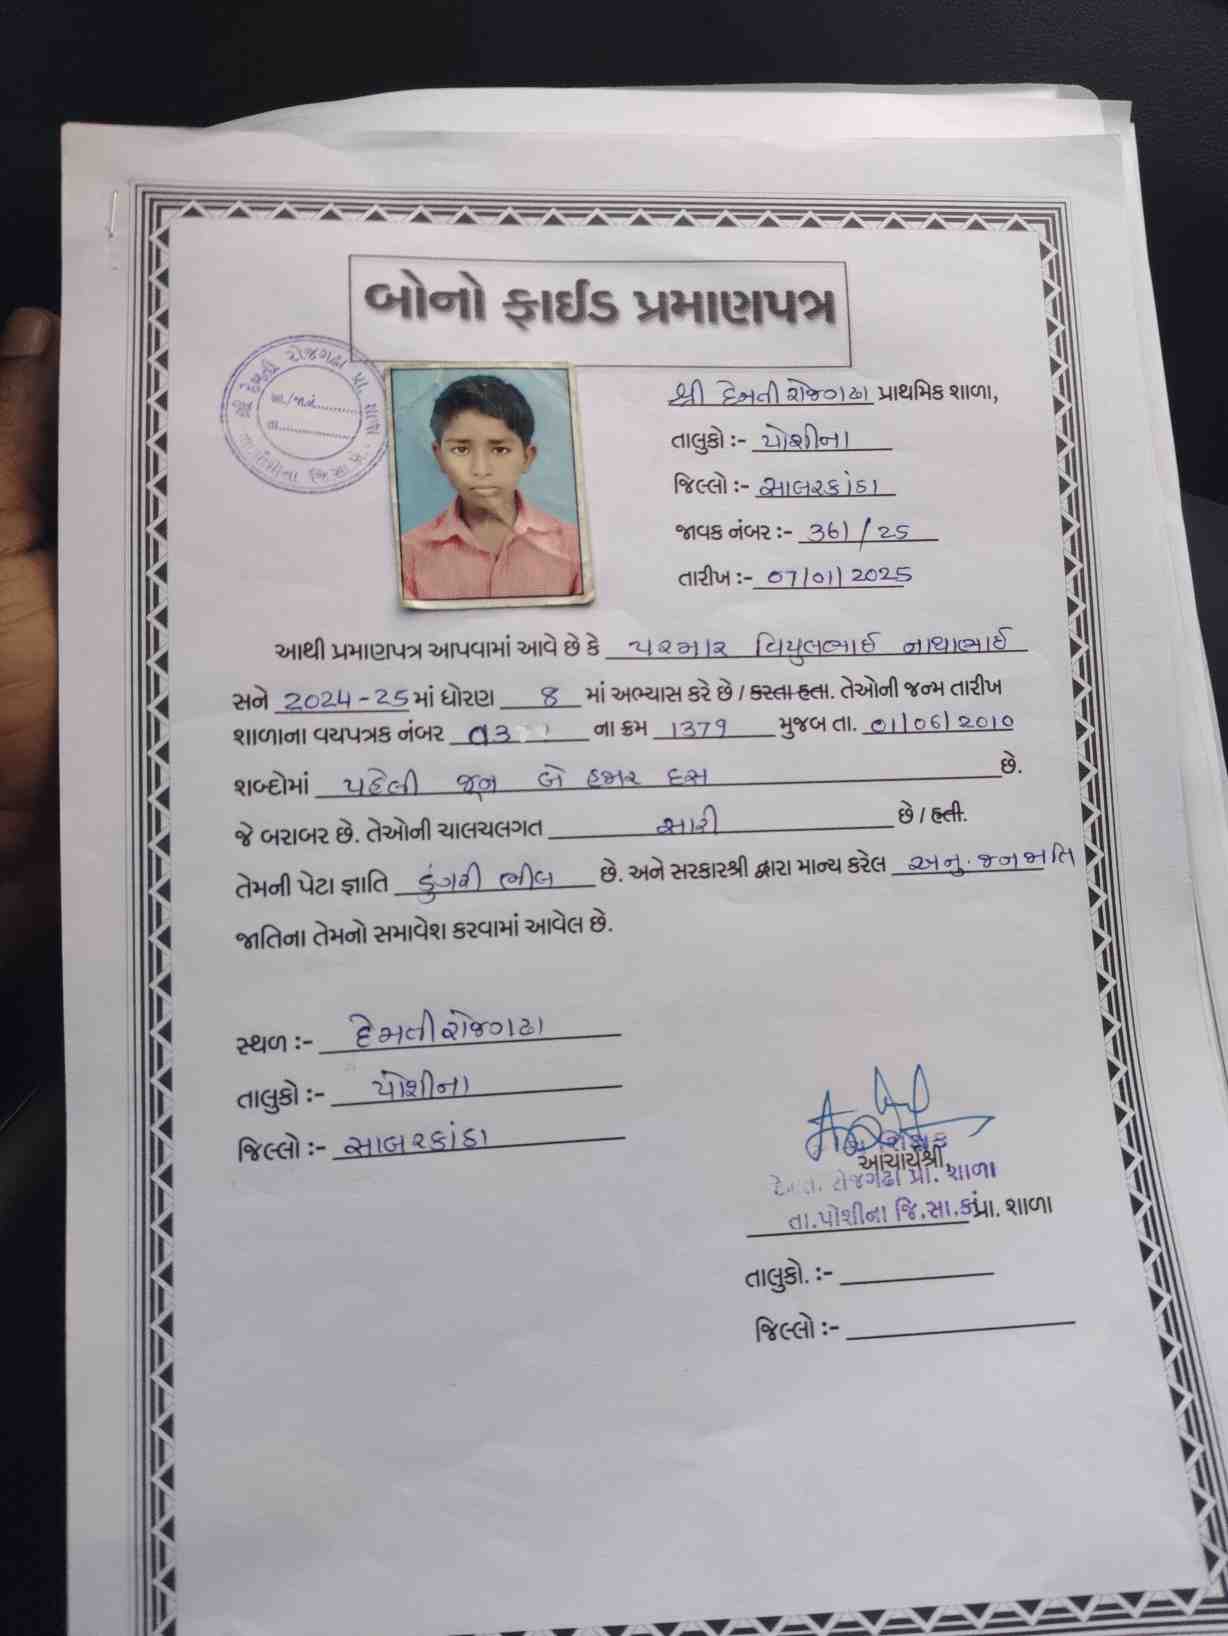 બોનો ફાઈડ પ્રમાણપત્ર
શ્રી દેમતી રોજગઢા પ્રાથમિક શાળા,
તાલુકો :- પોશીના
જિલ્લો :- સાબરકાંઠા
જાવક નંબર :- 361 / 25
તારીખ :- 07/01/2025
આથી પ્રમાણપત્ર આપવામાં આવે છે કે પરમાર વિપુલભાઈ નાથાભાઈ
સને 2024-25 માં ધોરણ 8 માં અભ્યાસ કરે છે / કરતા હતા. તેઓની જન્મ તારીખ
શાળાના વયપત્રક નંબર ના ક્રમ 1379 મુજબ તા. 01/06/2010
શબ્દોમાં પહેલી જૂન બે હજાર દસ છે.
જે બરાબર છે. તેઓની ચાલચલગત સારી છે / હતી.
તેમની પેટા જ્ઞાતિ ડુંગરી ભીલ છે. અને સરકારશ્રી દ્વારા માન્ય કરેલ અનુ. જનજાતિ
જાતિના તેમનો સમાવેશ કરવામાં આવેલ છે.
સ્થળ :- દેમતી રોજગઢા
તાલુકો :- પોશીના
જિલ્લો :- સાબરકાંઠા
આચાર્યશ્રી,
રોજગઢા પ્રા. શાળા
તા.પોશીના જિ.સા.કાં પ્રા. શાળા
તાલુકો. :-
જિલ્લો :-